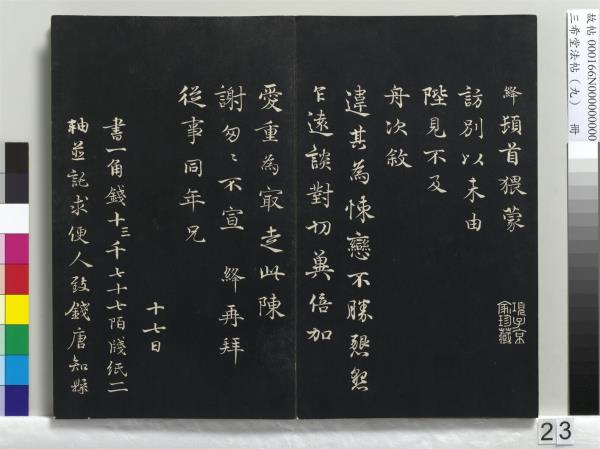 故帖 000166N000000000
三希堂法帖（九） 冊
絳頓首猥蒙
訪別以未由
陛見不及
舟次敘
違其為悚戀不勝懇懇
乍遠談對切冀倍加
愛重為㝡走此陳
謝匆〻不宣 絳再拜
從事同年兄
十七日
書一角錢十三千七十七陌牋紙二
軸並託求便人致錢唐知縣
項子京
家珍藏
23